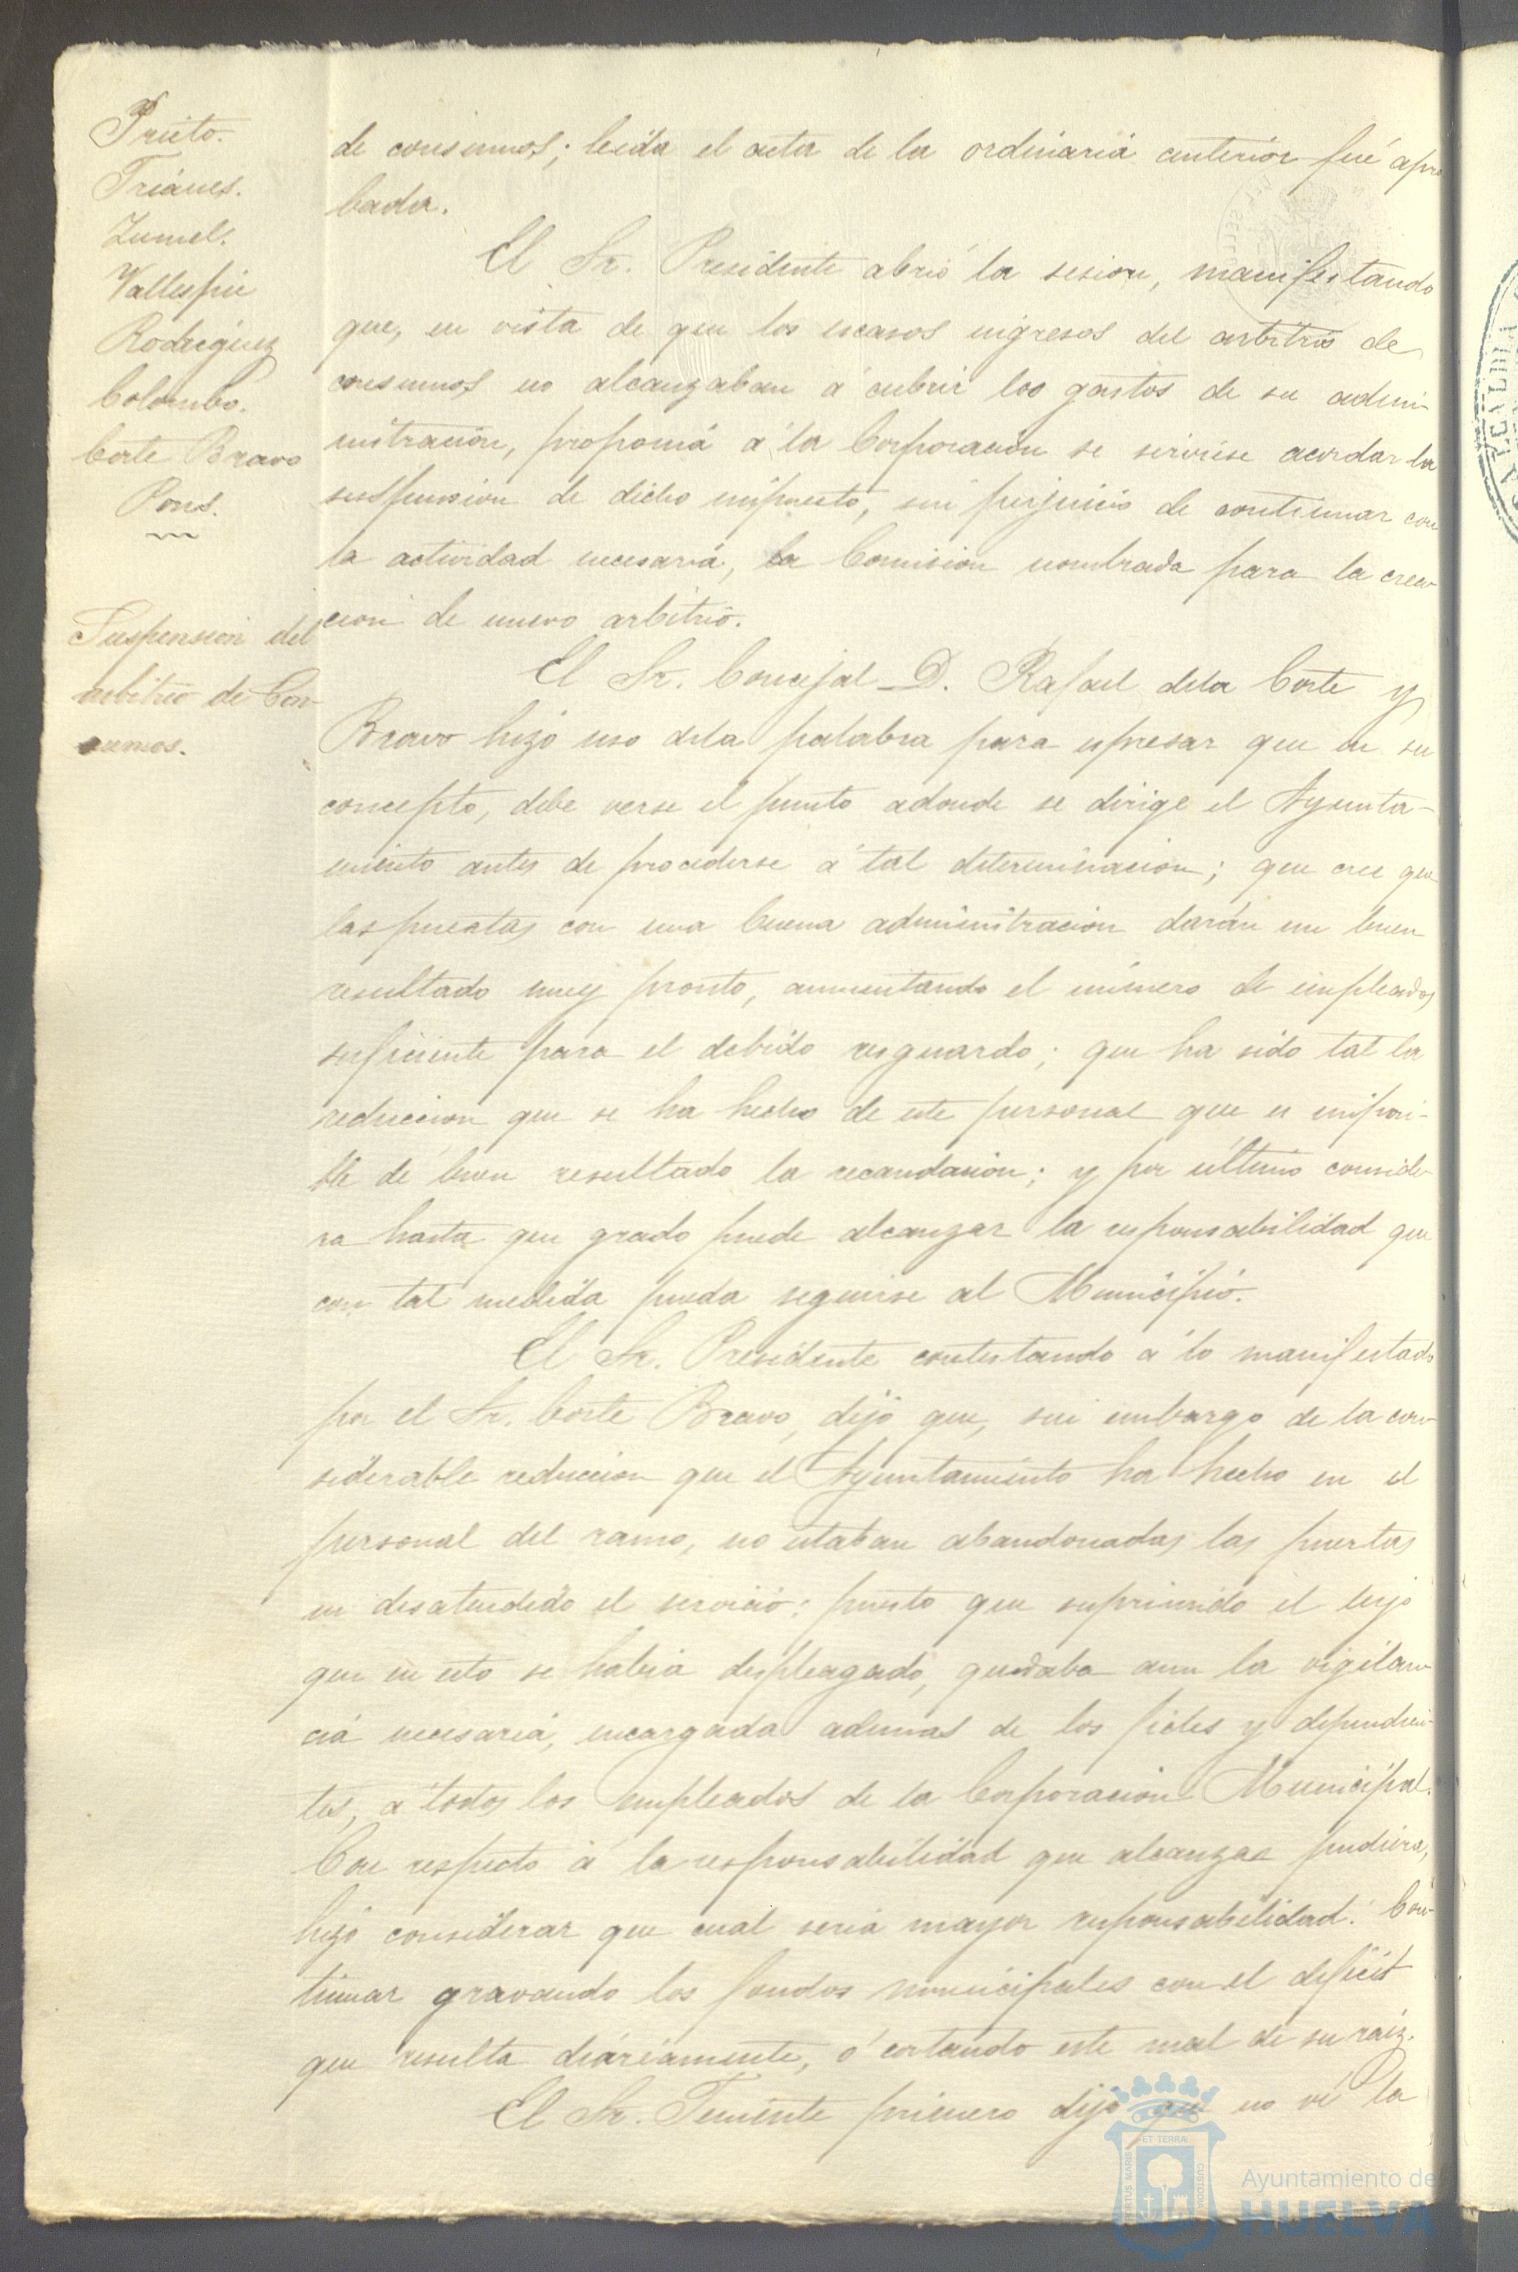 Prieto.
Triánes.
Zumel.
Vallespin
Rodriguez
Colombo.
Corte Bravo
Pons.
Suspension del
arbitrio de Con-
sumos.
de consumos; leida el acta de la ordinaria anterior fué apro
bada.
El Sr. Presidente abrió la sesion, manifestando
que, en vista de que los escasos ingresos del arbitrio de
consumos no alcanzaban á cubrir los gastos de su admi-
nistracion, proponia á la Corporacion se sirviese acordar la
suspension de dicho impuesto, sin perjuicio de continuar con
la actividad necesaria, la Comision nombrada para la crea-
cion de nuevo arbitrio.
El Sr. Concejal D. Rafael dela Corte y
Bravo hizo uso dela palabra para espresar que en su
concepto, debe verse el punto adonde se dirige el Ayunta-
miento antes de procederse á tal determinacion; que cree que
las puertas con una buena administracion darán un buen
resultado muy pronto, aumentando el número de empleados
suficiente para el debido resguardo; que ha sido tal la
reduccion que se ha hecho de este personal que es imposi-
ble dé buen resultado la recaudacion; y por último conside-
ra hasta que grado puede alcanzar la responsabilidad que
con tal medida pueda seguirse al Municipio.
El Sr. Presidente contestando á lo manifestado
por el Sr. Corte Bravo, dijo que, sin embargo de la con-
siderable reduccion que el Ayuntamiento ha hecho en el
personal del ramo, no estaban abandonadas las puertas
ni desatendido el servicio: puesto que suprimido el lujo
que en esto se habia desplegado, quedaba aun la vigilan-
cia necesaria, encargada ademas de los fieles y dependien-
tes, á todos los empleados de la Corporacion Municipal.
Con respecto á la responsabilidad que alcanzar pudiera,
hizo considerar que cual seria mayor responsabilidad: Con-
tinuar gravando los fondos municipales con el deficit
que resulta diariamente, ó cortando este mal de su raiz.
El Sr. Teniente primero dijo que no vé la
ET TERRAE
CUSTODIA
PORTUS MARIS
Ayuntamiento de
HUELVA